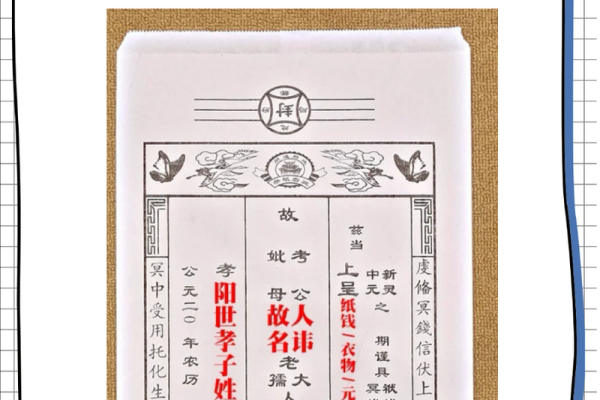 封
虔俻冥錢信伏上
兹当
新灵
中元
之
期谨具
上呈纸钱/衣物/元
故
考
妣
公人讳
母故名
老大人
孺
孝阳世孝子姓
公元二〇年农历
冥中受用托化生